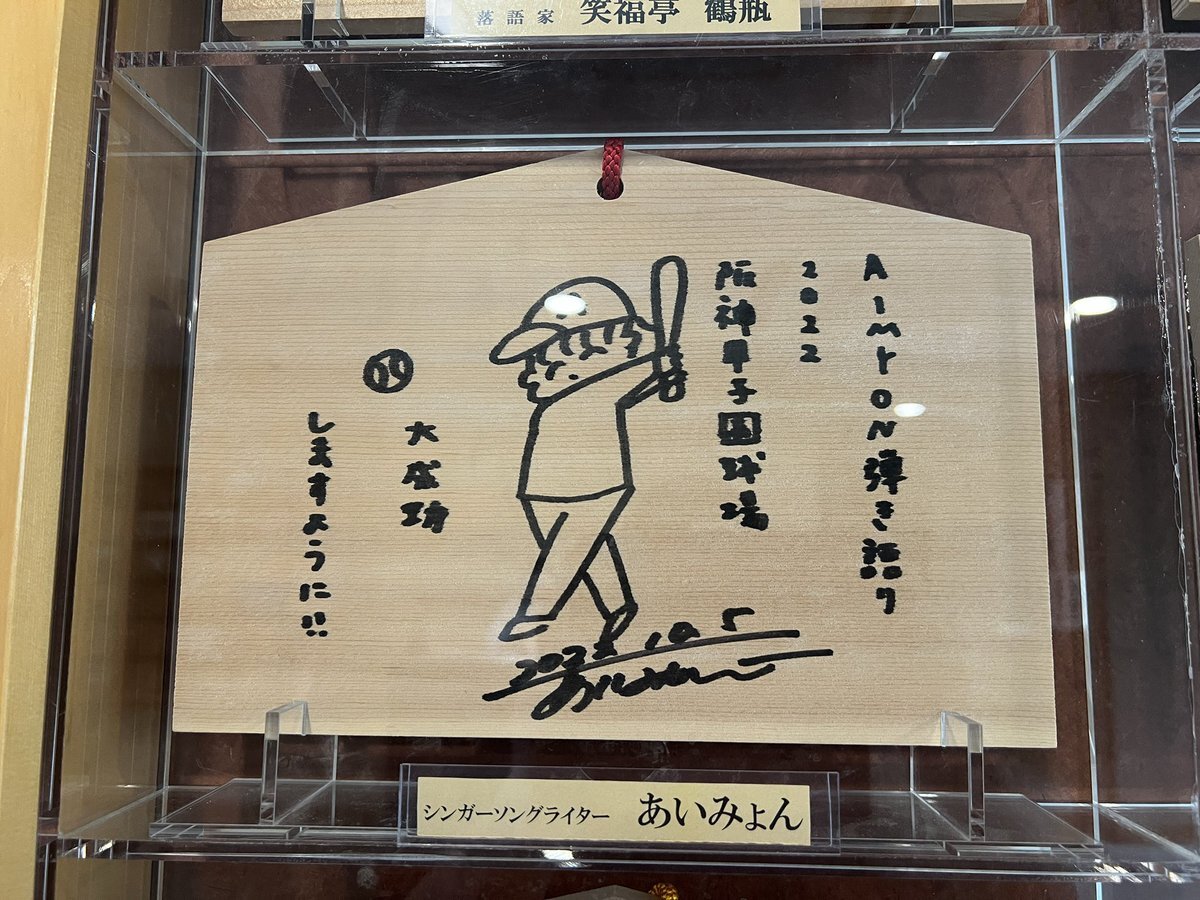 落語家 笑福亭 鶴瓶
AIMYON弾き語り
2022
阪神甲子園球場
大成功
しますように!!
2022.10.5
シンガーソングライター あいみょん